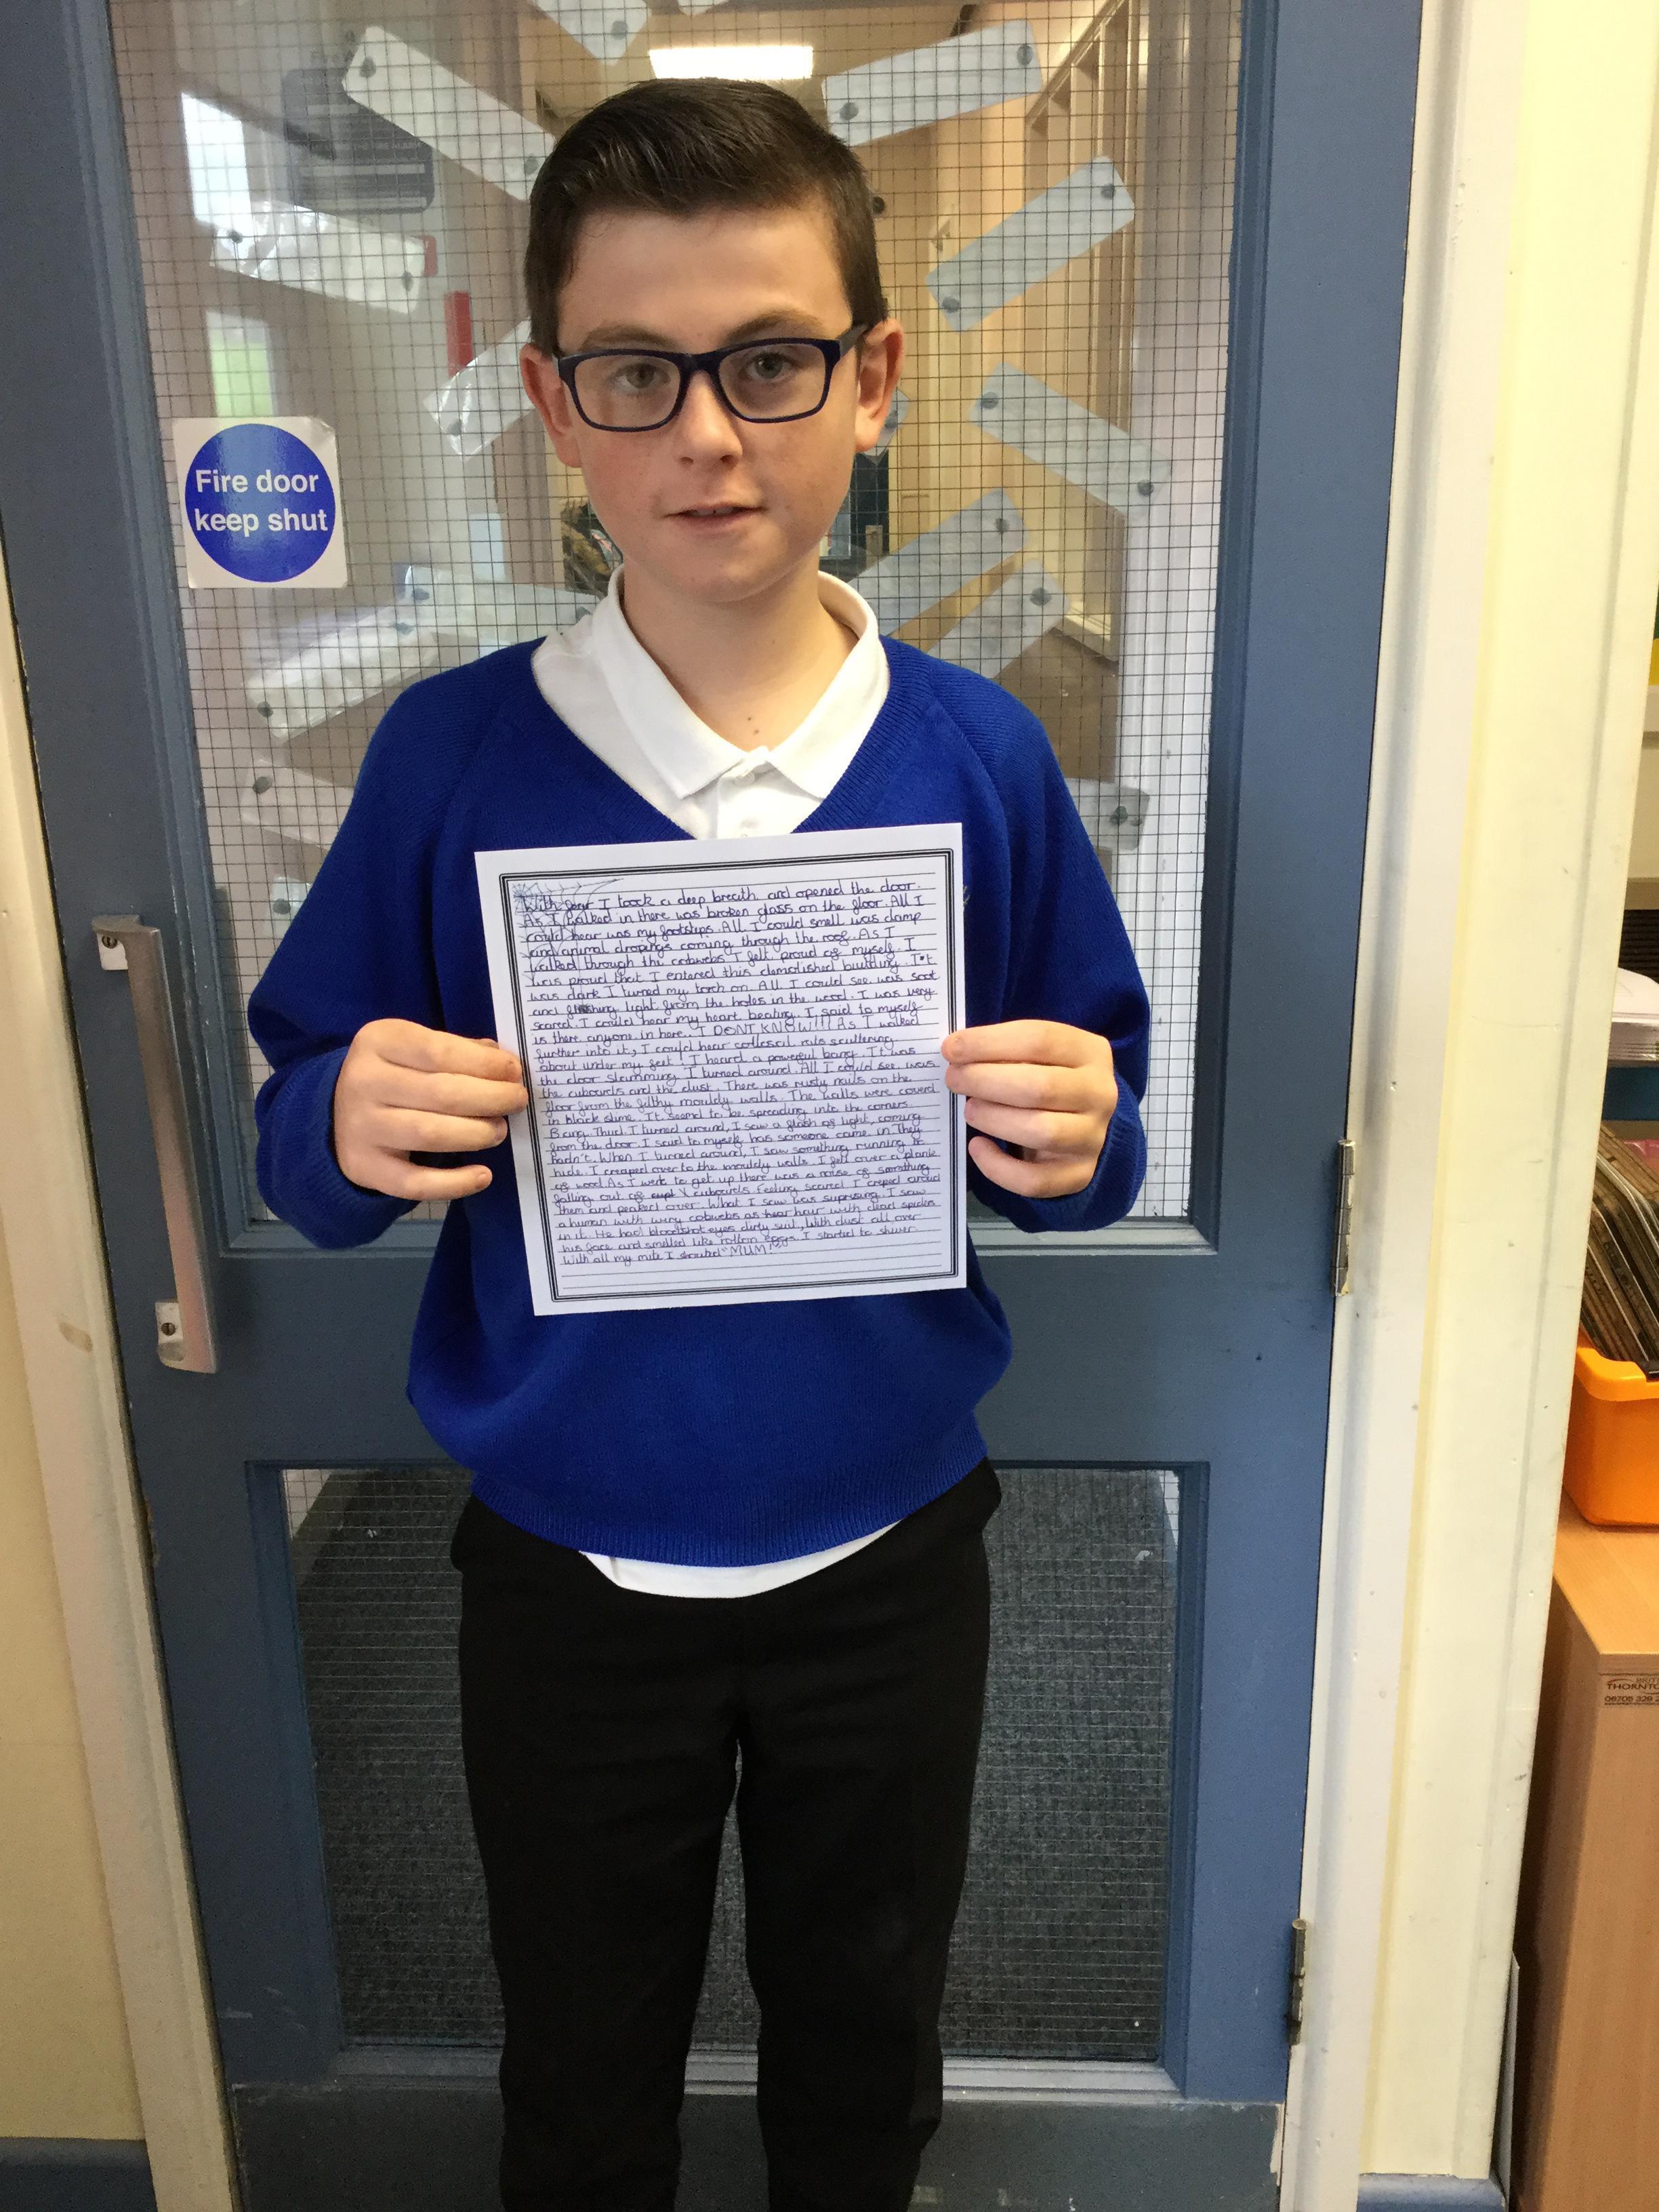 Fire door
keep shut
With fear I toock a deep breath and opened the door.
As I walked in there was broken glass on the floor. All I
could hear was my footsteps. All I could smell was damp
and animal dropings coming through the roof. As I
walked through the cobwebs I felt proud of myself. I
was proud that I entered this demolished building. It
was dark I turned my torch on. All I could see was soot
and light from the holes in the wood. I was very
scared. I could hear my heart beating. I said to myself
is there anyone in here. I DONT KNOW!!! As I walked
further into it, I could hear collescil rats scuttering
about under my feet. I heard a powerful bang. It was
the door slamming. I turned around. All I could see was
the cuboards and the dust. There was rusty nails on the
floor from the filthy mouldy walls. The walls were coverd
in black slime. It seemd to be spreading into the corners.
Bang. Thud. I turned around, I saw a flash of light, coming
from the door. I said to myself has someone came in They
hadn't. When I turned around, I saw something running to
hide. I creaped over to the mouldy walls. I fell over a plank
of wood. As I went to get up there was a noise of something
falling out of cuboards. Feeling scared I creped aroud
them and peaked over. What I saw was suprising. I saw
a human with wiry cobwebs as hear hair with dead spides
in it. He had bloodshot eyes dirty suit, With dust all over
his face and smelled like rotten eggs. I started to shiver
With all my mite I shouted "MUM!"
THORNTO